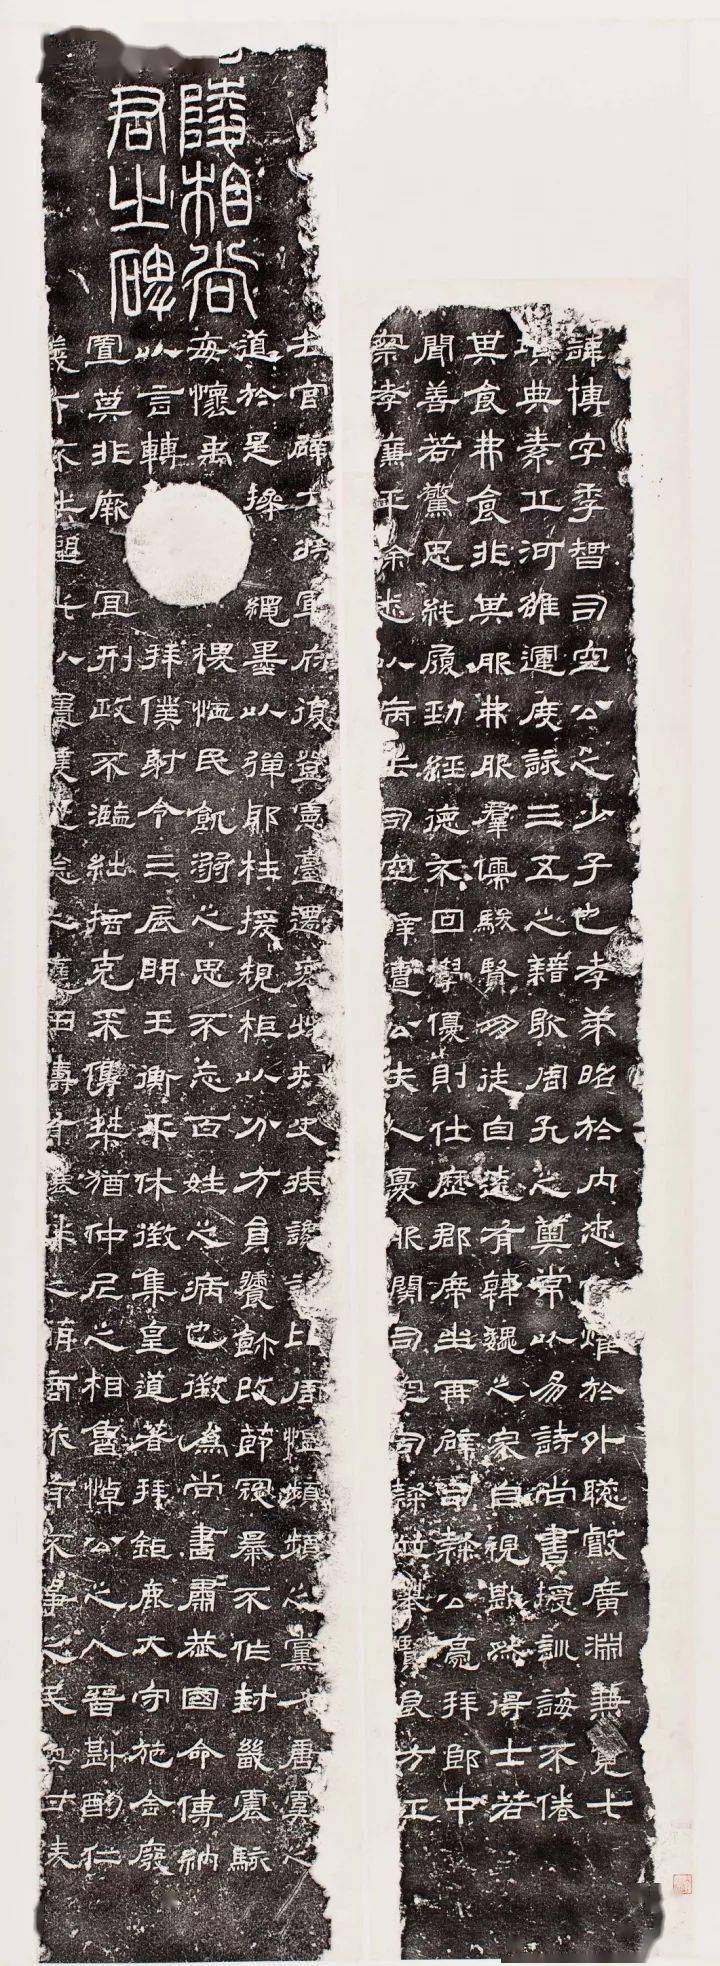 陵相尚
君之碑
諱博字季智司空公之少子也孝弟昭於內忠燿於外聰叡廣淵兼覽七
典素丘河雒運度詠三五之籍歇周孔之奧常以易詩尚書授訓誨不倦
其食弗食非其服弗服羣儒駿賢朋徒自遠有韓魏之家自視歉然得士若
聞善若驚思純履勁經德不回學優則仕歷郡席坐再辟司隸公亮拜郎中
察孝廉平除悉以病去司空辟遭公夫人憂服闋司空司隸並舉賢良方正
去官辟大將軍府復登憲臺遷兗州刺史疾讒比周愠頻頻之黨唐虞之
道於是操繩墨以彈耶枉援規柜以分方員饕飻改節寇暴不作封畿震駭
每懷禹稷恤民飢溺之思不忘百姓之病也徵為尚書肅恭國命傳納
以言轉拜僕射令三辰明王衡平休徵集皇道著拜鉅鹿大守施舍廢
置莫非厥宜刑政不濫絀掊克采儁桀猶仲尼之相魯悼公之入晉斟酌仁
義不之表